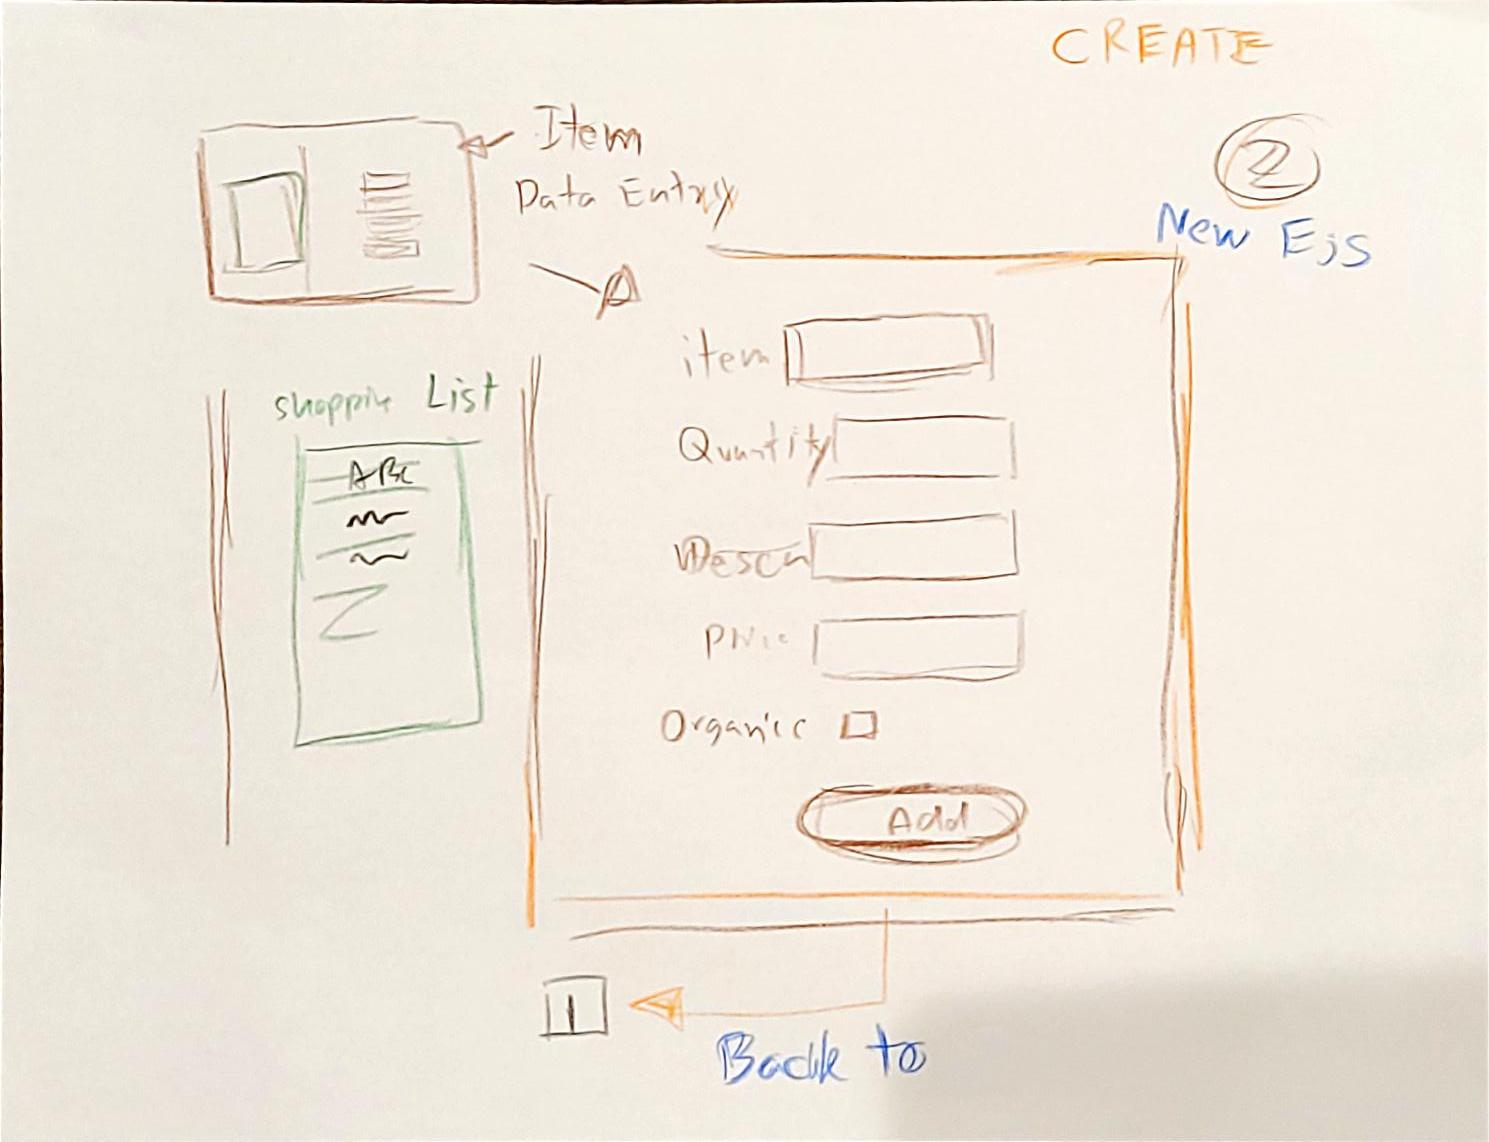 CREATE
Item
Data Entry
2
New Ejs
item
Shoppin List
ABC
Quantity
Descn
Organicc
Add
1
Back to